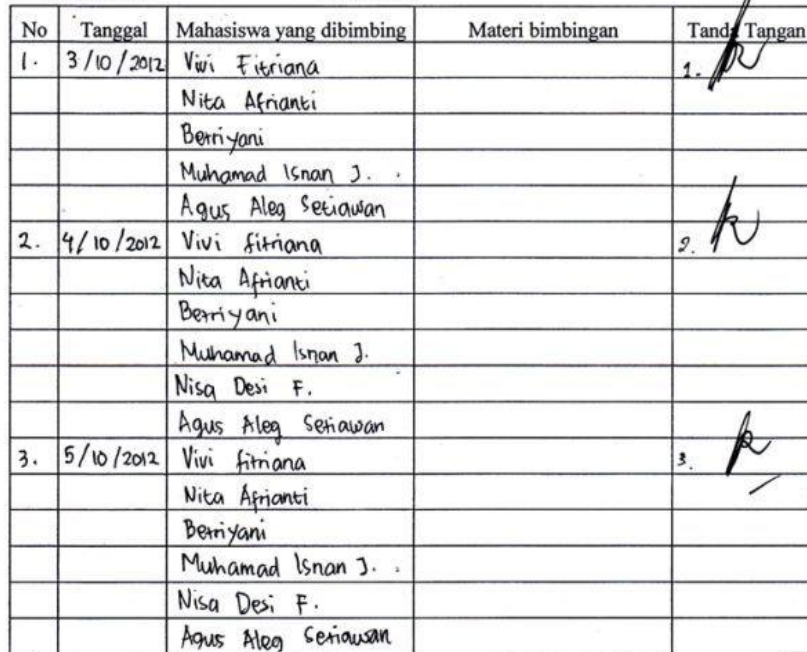 No Tanggal Mahasiswa yang dibimbing Materi bimbingan Tanda Tangan
1. 3/10/2012 Vivi Fitriana 1.
Nita Afrianti
Berriyani
Muhamad Isnan J.
Agus Aleg Setiawan
2. 4/10/2012 Vivi fitriana 2.
Nita Afrianti
Berriyani
Muhamad Isnan J.
Nisa Desi F.
Agus Aleg Setiawan
3. 5/10/2012 Vivi fitriana 3.
Nita Afrianti
Berriyani
Muhamad Isnan J.
Nisa Desi F.
Agus Aleg Setiawan